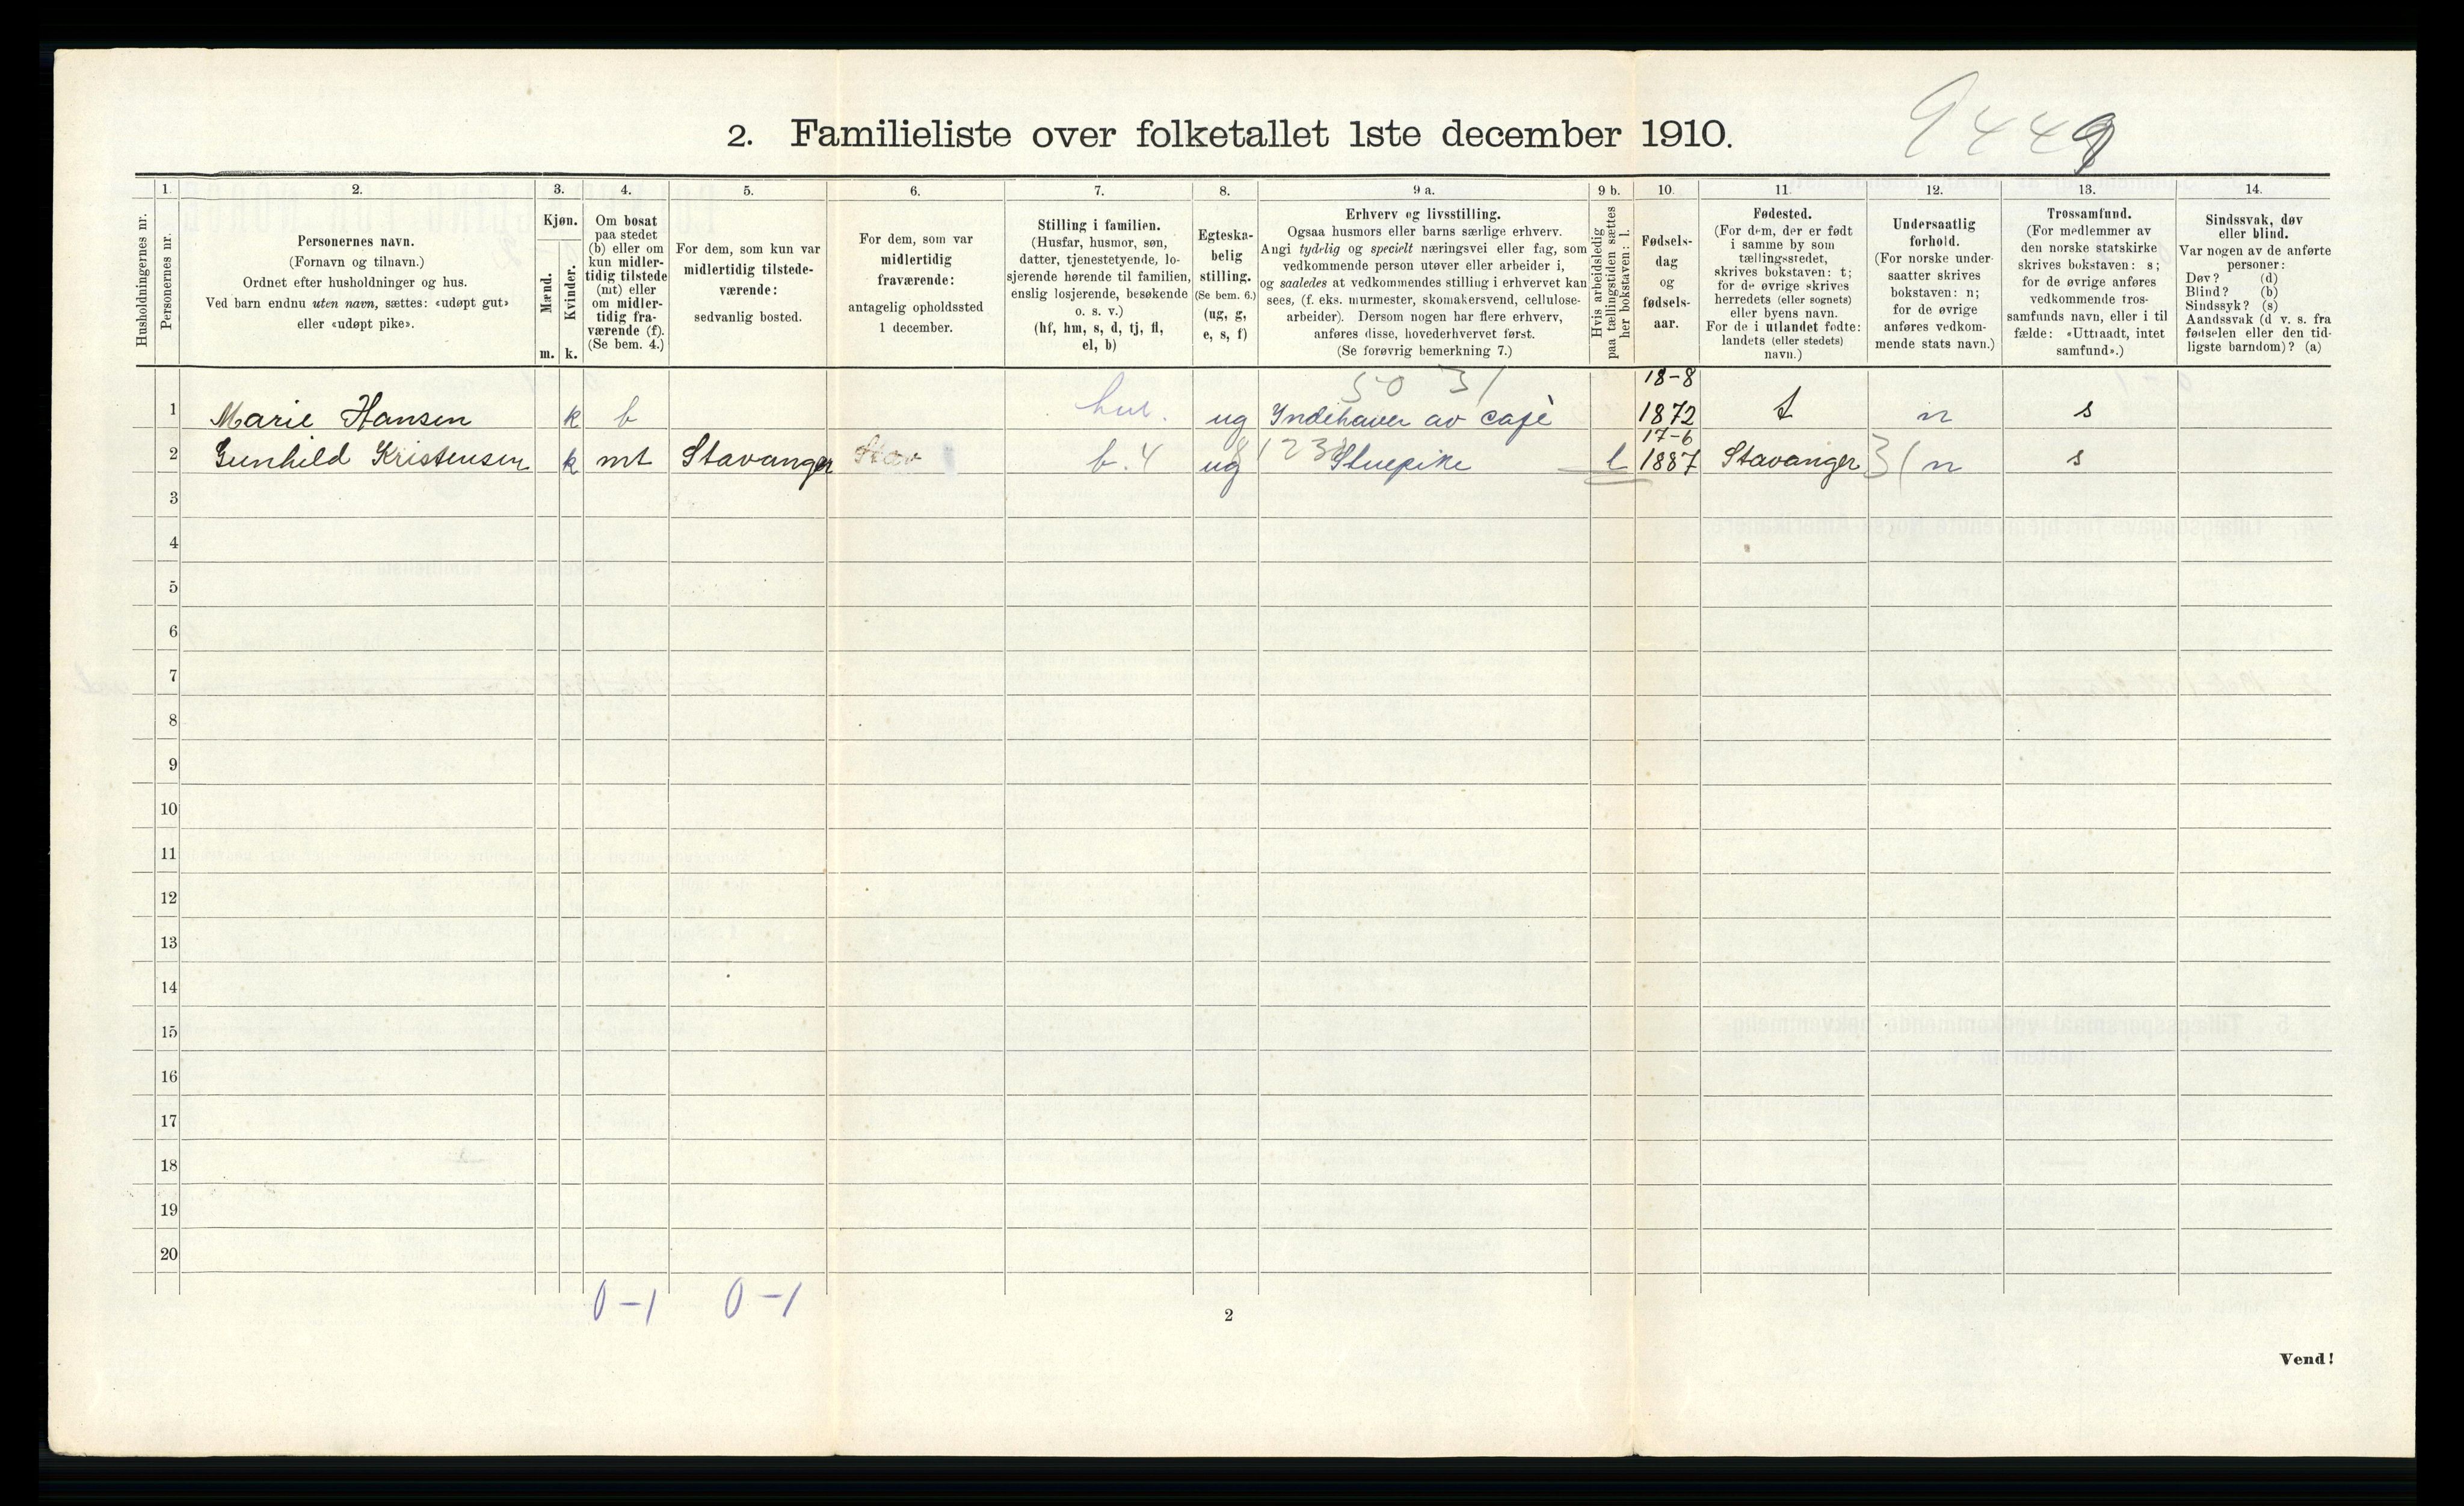 2. Familieliste over folketallet 1ste december 1910.
9449
1. 2. 3. 4. 5. 6. 7. 8. 9 a. 9 b. 10. 11. 12. 13. 14.
Husholdningernes nr.
Personernes nr.
Personernes navn.
(Fornavn og tilnavn.)
Ordnet efter husholdninger og hus.
Ved barn endnu uten navn, sættes: «udøpt gut»
eller «udøpt pike».
Kjøn.
Mænd.
Kvinder.
m. k.
Om bosat
paa stedet
(b) eller om
kun midler-
tidig tilstede
(mt) eller
om midler-
tidig fra-
værende (f).
(Se bem. 4.)
For dem, som kun var
midlertidig tilstede-
værende:
sedvanlig bosted.
For dem, som var
midlertidig
fraværende:
antagelig opholdssted
1 december.
Stilling i familien.
(Husfar, husmor, søn,
datter, tjenestetyende, lo-
sjerende hørende til familien,
enslig losjerende, besøkende
o. s. v.)
(hf, hm, s, d, tj, fl,
el, b)
Egteska-
belig
stilling.
(Se bem. 6.)
(ug, g,
e, s, f)
Erhverv og livsstilling.
Ogsaa husmors eller barns særlige erhverv.
Angi tydelig og specielt næringsvei eller fag, som
vedkommende person utøver eller arbeider i,
og saaledes at vedkommendes stilling i erhvervet kan
sees, (f. eks. murmester, skomakersvend, cellulose-
arbeider). Dersom nogen har flere erhverv,
anføres disse, hovederhvervet først.
(Se forøvrig bemerkning 7.)
Hvis arbeidsledig
paa tællingstiden sættes
her bokstaven: l.
Fødsels-
dag
og
fødsels-
aar.
Fødested.
(For dem, der er født
i samme by som
tællingsstedet,
skrives bokstaven: t;
for de øvrige skrives
herredets (eller sognets)
eller byens navn.
For de i utlandet fødte:
landets (eller stedets)
navn.)
Undersaatlig
forhold.
(For norske under-
saatter skrives
bokstaven: n;
for de øvrige
anføres vedkom-
mende stats navn.)
Trossamfund.
(For medlemmer av
den norske statskirke
skrives bokstaven: s;
for de øvrige anføres
vedkommende tros-
samfunds navn, eller i til
fælde: «Uttraadt, intet
samfund».)
Sindssvak, døv
eller blind.
Var nogen av de anførte
personer:
Døv? (d)
Blind? (b)
Sindssyk? (s)
Aandssvak (d. v. s. fra
fødselen eller den tid-
ligste barndom)? (a)
50 31 18-8
1 Marie Hansen k b ug Indehaver av café 1872 t n s
17-6
2 Gunhild Kristensen k mt Stavanger Stav b. 4 ug Stuepike l 1887 Stavanger 31 n s
3
4
5
6
7
8
9
10
11
12
13
14
15
16
17
18
19
20
0-1 0-1
2
Vend!